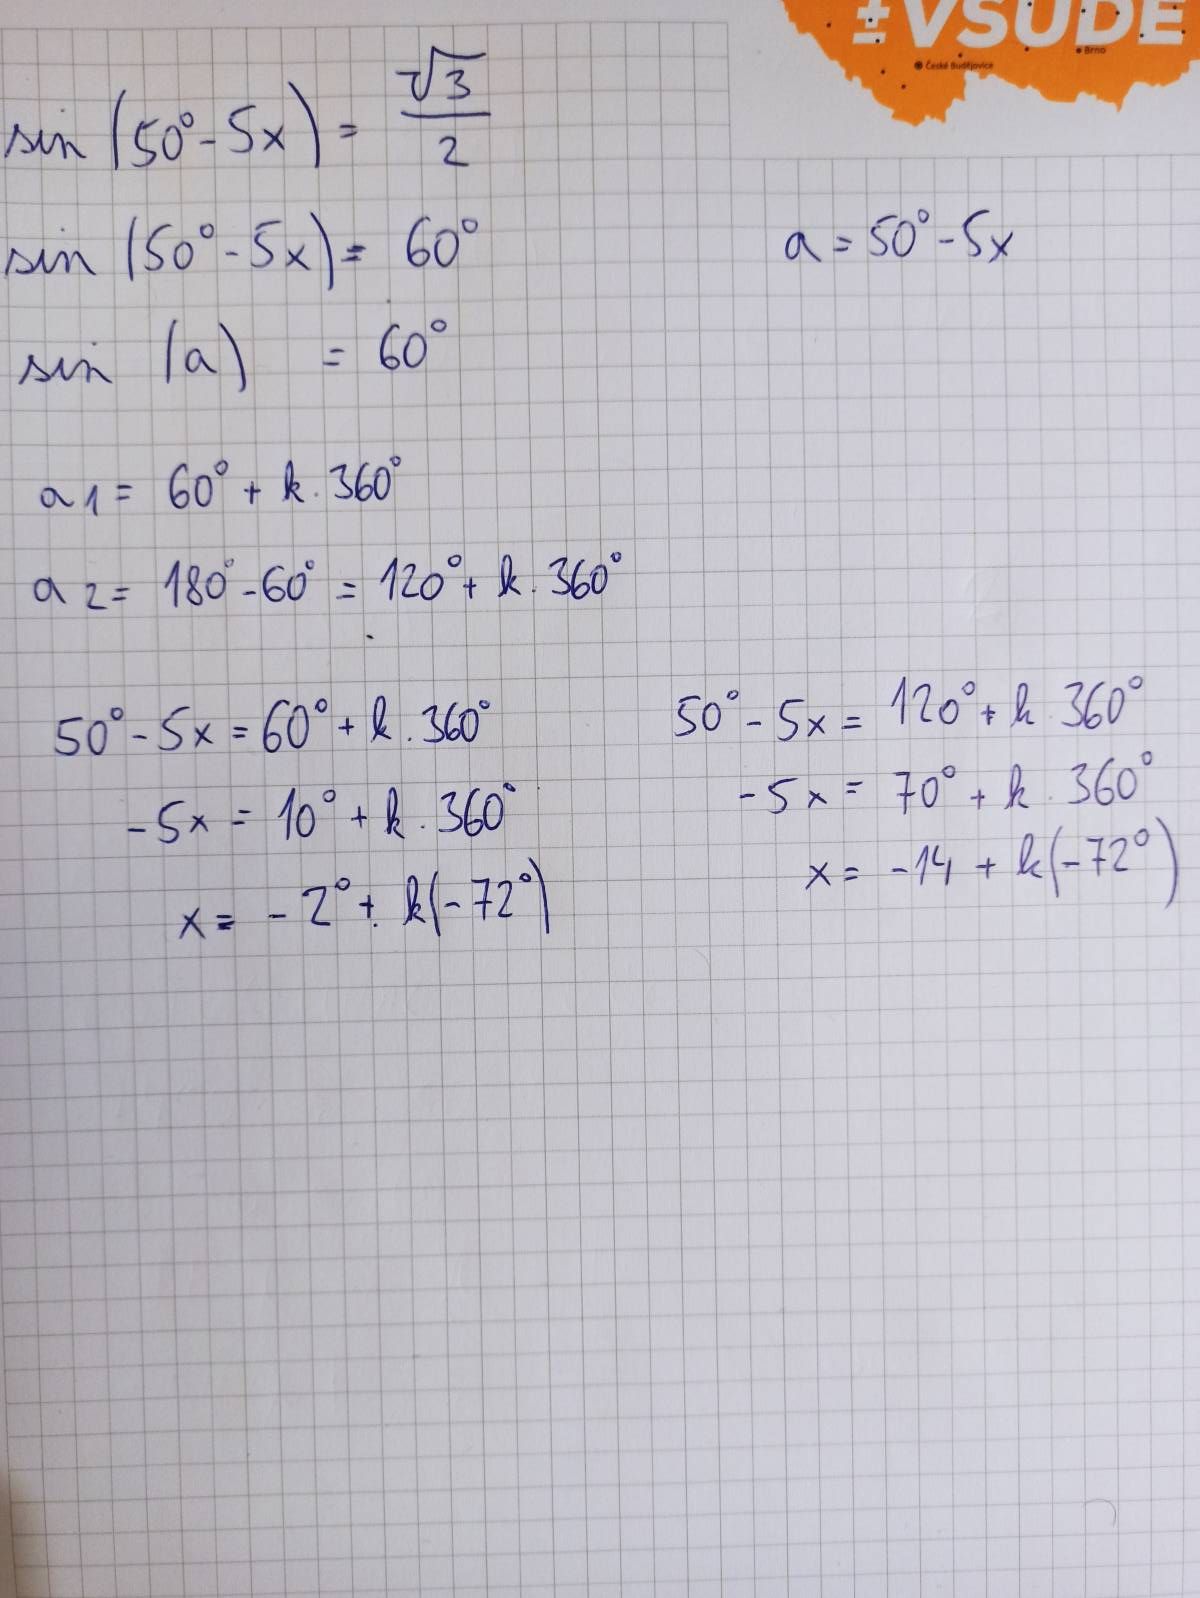 ±VŠUDE
Brno
České Budějovice
sin (50° - 5x) = √3/2
sin (50° - 5x) = 60°
a = 50° - 5x
sin (a) = 60°
a1 = 60° + k.360°
a2 = 180° - 60° = 120° + k.360°
50° - 5x = 60° + k.360°
-5x = 10° + k.360°
x = -2° + k(-72°)
50° - 5x = 120° + k.360°
-5x = 70° + k.360°
x = -14 + k(-72°)